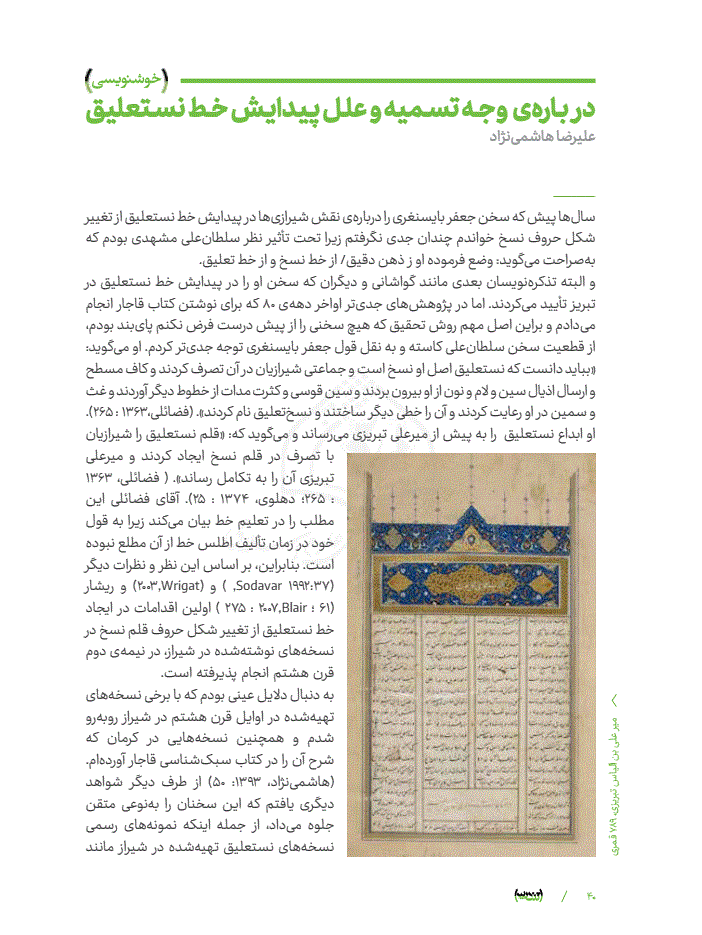 (خوشنویسی)
درباره‌ی وجه تسمیه و علل پیدایش خط نستعلیق
علیرضا هاشمی‌نژاد
سال‌ها پیش که سخن جعفر بایسنغری را درباره‌ی نقش شیرازی‌ها در پیدایش خط نستعلیق از تغییر
شکل حروف نسخ خواندم چندان جدی نگرفتم زیرا تحت تأثیر نظر سلطان‌علی مشهدی بودم که
به‌صراحت می‌گوید: وضع فرموده او ز ذهن دقیق/ از خط نسخ و از خط تعلیق.
و البته تذکره‌نویسان بعدی مانند گواشانی و دیگران که سخن او را در پیدایش خط نستعلیق در
تبریز تأیید می‌کردند. اما در پژوهش‌های جدی‌تر اواخر دهه‌ی ۸۰ که برای نوشتن کتاب قاجار انجام
می‌دادم و براین اصل مهم روش تحقیق که هیچ سخنی را از پیش درست فرض نکنم پای‌بند بودم،
از قطعیت سخن سلطان‌علی کاسته و به نقل قول جعفر بایسنغری توجه جدی‌تر کردم. او می‌گوید:
«بباید دانست که نستعلیق اصل او نسخ است و جماعتی شیرازیان در آن تصرف کردند و کاف مسطح
و ارسال اذیال سین و لام و نون از او بیرون بردند و سین قوسی و کثرت مدات از خطوط دیگر آوردند و غث
و سمین در او رعایت کردند و آن را خطی دیگر ساختند و نسخ‌تعلیق نام کردند». (فضائلی،۱۳۶۳ :۲۶۵).
او ابداع نستعلیق را به پیش از میرعلی تبریزی می‌رساند و می‌گوید که: «قلم نستعلیق را شیرازیان
با تصرف در قلم نسخ ایجاد کردند و میرعلی
تبریزی آن را به تکامل رساند». ( فضائلی، ۱۳۶۳
: ۲۶۵؛ دهلوی، ۱۳۷۴ : ۲۵). آقای فضائلی این
مطلب را در تعلیم خط بیان می‌کند زیرا به قول
خود در زمان تألیف اطلس خط از آن مطلع نبوده
است. بنابراین، بر اساس این نظر و نظرات دیگر
(۱۹۹۲:۳۷ Sodavar, ) و (Wrigat,۲۰۰۳) و ریشار
(۶۱ ؛ Blair,۲۰۰۷ : ۲۷۵ ) اولین اقدامات در ایجاد
خط نستعلیق از تغییر شکل حروف قلم نسخ در
نسخه‌های نوشته‌شده در شیراز، در نیمه‌ی دوم
قرن هشتم انجام پذیرفته است.
به دنبال دلایل عینی بودم که با برخی نسخه‌های
تهیه‌شده در اوایل قرن هشتم در شیراز روبه‌رو
شدم و همچنین نسخه‌هایی در کرمان که
شرح آن را در کتاب سبک‌شناسی قاجار آورده‌ام.
(هاشمی‌نژاد، ۱۳۹۳: ۵۰) از طرف دیگر شواهد
دیگری یافتم که این سخنان را به‌نوعی متقن
جلوه می‌داد، از جمله اینکه نمونه‌های رسمی
نسخه‌های نستعلیق تهیه‌شده در شیراز مانند
میر علی بن الیاس تبریزی، ۷۸۹ قمری
۴۰ /